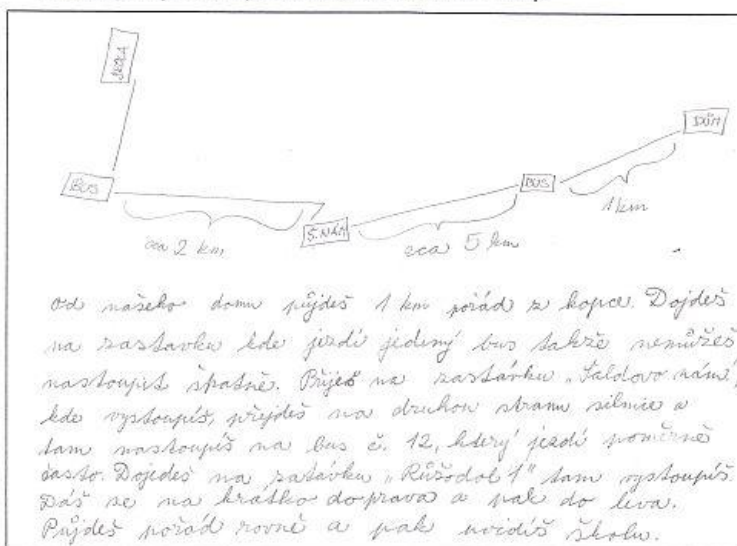 BUS
DŮM
BUS
Š.NÁM
1 km
cca 2 km
cca 5 km
od našeho domu půjdeš 1 km pořád z kopce. Dojdeš
na zastavku kde jezdí jediný bus takže nemůžeš
nastoupit špatně. Přiješ na zastávku „Šaldovo nám",
kde vystoupíš, přejdeš na druhou stranu silnice a
tam nastoupíš na bus č. 12, který jezdí poměrně
často. Dojedeš na zatávku „Růžodol 1" tam vystoupíš.
Dáš se na krátko doprava a pak do leva.
Půjdeš pořád rovně a pak uvidíš školu.